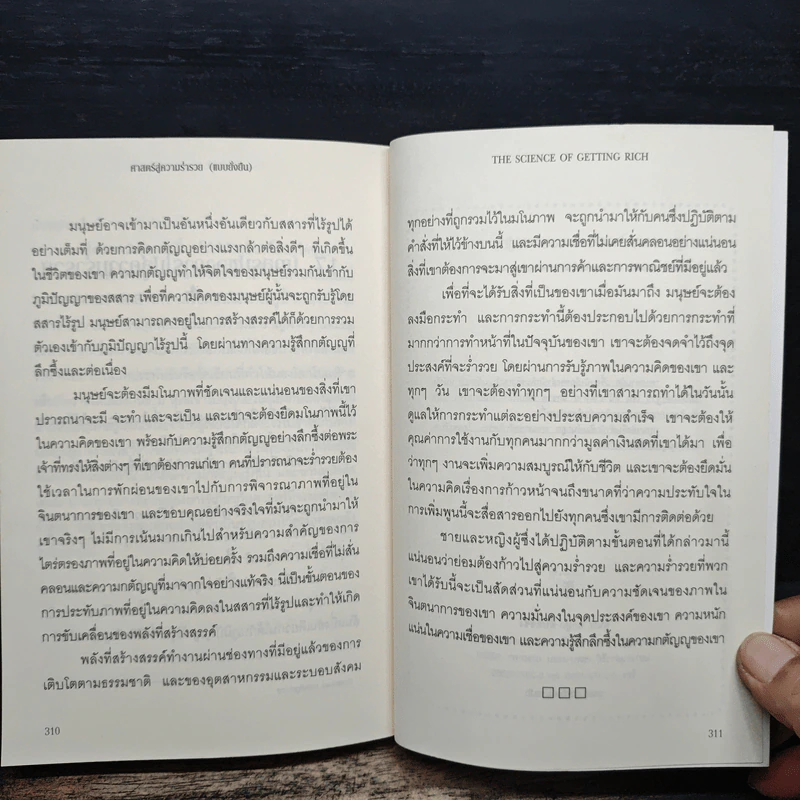 ศาสตร์สู่ความร่ำรวย (แบบยั่งยืน)
มนุษย์อาจเข้ามาเป็นอันหนึ่งอันเดียวกับสสารที่ไร้รูปได้
อย่างเต็มที่ ด้วยการคิดกตัญญูอย่างแรงกล้าต่อสิ่งดีๆ ที่เกิดขึ้น
ในชีวิตของเขา ความกตัญญูทำให้จิตใจของมนุษย์รวมกันเข้ากับ
ภูมิปัญญาของสสาร เพื่อที่ความคิดของมนุษย์ผู้นั้นจะถูกรับรู้โดย
สสารไร้รูป มนุษย์สามารถคงอยู่ในการสร้างสรรค์ได้ก็ด้วยการรวม
ตัวเองเข้ากับภูมิปัญญาไร้รูปนี้ โดยผ่านทางความรู้สึกกตัญญูที่
ลึกซึ้งและต่อเนื่อง
มนุษย์จะต้องมีมโนภาพที่ชัดเจนและแน่นอนของสิ่งที่เขา
ปรารถนาจะมี จะทำ และจะเป็น และเขาจะต้องยึดมโนภาพนี้ไว้
ในความคิดของเขา พร้อมกับความรู้สึกกตัญญูอย่างลึกซึ้งต่อพระ
เจ้าที่ทรงให้สิ่งต่างๆ ที่เขาต้องการแก่เขา คนที่ปรารถนาจะร่ำรวยต้อง
ใช้เวลาในการพักผ่อนของเขาไปกับการพิจารณาภาพที่อยู่ใน
จินตนาการของเขา และขอบคุณอย่างจริงใจที่มันจะถูกนำมาให้
เขาจริงๆ ไม่มีการเน้นมากเกินไปสำหรับความสำคัญของการ
ไตร่ตรองภาพที่อยู่ในความคิดให้บ่อยครั้ง รวมถึงความเชื่อที่ไม่สั่น
คลอนและความกตัญญูที่มาจากใจอย่างแท้จริง นี่เป็นขั้นตอนของ
การประทับภาพที่อยู่ในความคิดลงในสสารที่ไร้รูปและทำให้เกิด
การขับเคลื่อนของพลังที่สร้างสรรค์
พลังที่สร้างสรรค์ทำงานผ่านช่องทางที่มีอยู่แล้วของการ
เติบโตตามธรรมชาติ และของอุตสาหกรรมและระบอบสังคม
310
THE SCIENCE OF GETTING RICH
ทุกอย่างที่ถูกรวมไว้ในมโนภาพ จะถูกนำมาให้กับคนซึ่งปฏิบัติตาม
คำสั่งที่ให้ไว้ข้างบนนี้ และมีความเชื่อที่ไม่เคยสั่นคลอนอย่างแน่นอน
สิ่งที่เขาต้องการจะมาสู่เขาผ่านการค้าและการพาณิชย์ที่มีอยู่แล้ว
เพื่อที่จะได้รับสิ่งที่เป็นของเขาเมื่อมันมาถึง มนุษย์จะต้อง
ลงมือกระทำ และการกระทำนี้ต้องประกอบไปด้วยการกระทำที่
มากกว่าการทำหน้าที่ในปัจจุบันของเขา เขาจะต้องจดจำไว้ถึงจุด
ประสงค์ที่จะร่ำรวย โดยผ่านการรับรู้ภาพในความคิดของเขา และ
ทุกๆ วัน เขาจะต้องทำทุกๆ อย่างที่เขาสามารถทำได้ในวันนั้น
ดูแลให้การกระทำแต่ละอย่างประสบความสำเร็จ เขาจะต้องให้
คุณค่าการใช้งานกับทุกคนมากกว่ามูลค่าเงินสดที่เขาได้มา เพื่อ
ว่าทุกๆ งานจะเพิ่มความสมบูรณ์ให้กับชีวิต และเขาจะต้องยึดมั่น
ในความคิดเรื่องการก้าวหน้าจนถึงขนาดที่ว่าความประทับใจใน
การเพิ่มพูนนี้จะสื่อสารออกไปยังทุกคนซึ่งเขามีการติดต่อด้วย
ชายและหญิงผู้ซึ่งได้ปฏิบัติตามขั้นตอนที่ได้กล่าวมานี้
แน่นอนว่าย่อมต้องก้าวไปสู่ความร่ำรวย และความร่ำรวยที่พวก
เขาได้รับนี้จะเป็นสัดส่วนที่แน่นอนกับความชัดเจนของภาพใน
จินตนาการของเขา ความมั่นคงในจุดประสงค์ของเขา ความหนัก
แน่นในความเชื่อของเขา และความรู้สึกลึกซึ้งในความกตัญญูของเขา
311